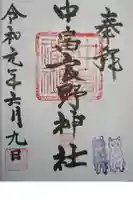 奉拝
中富良野神社
令和元年六月九日